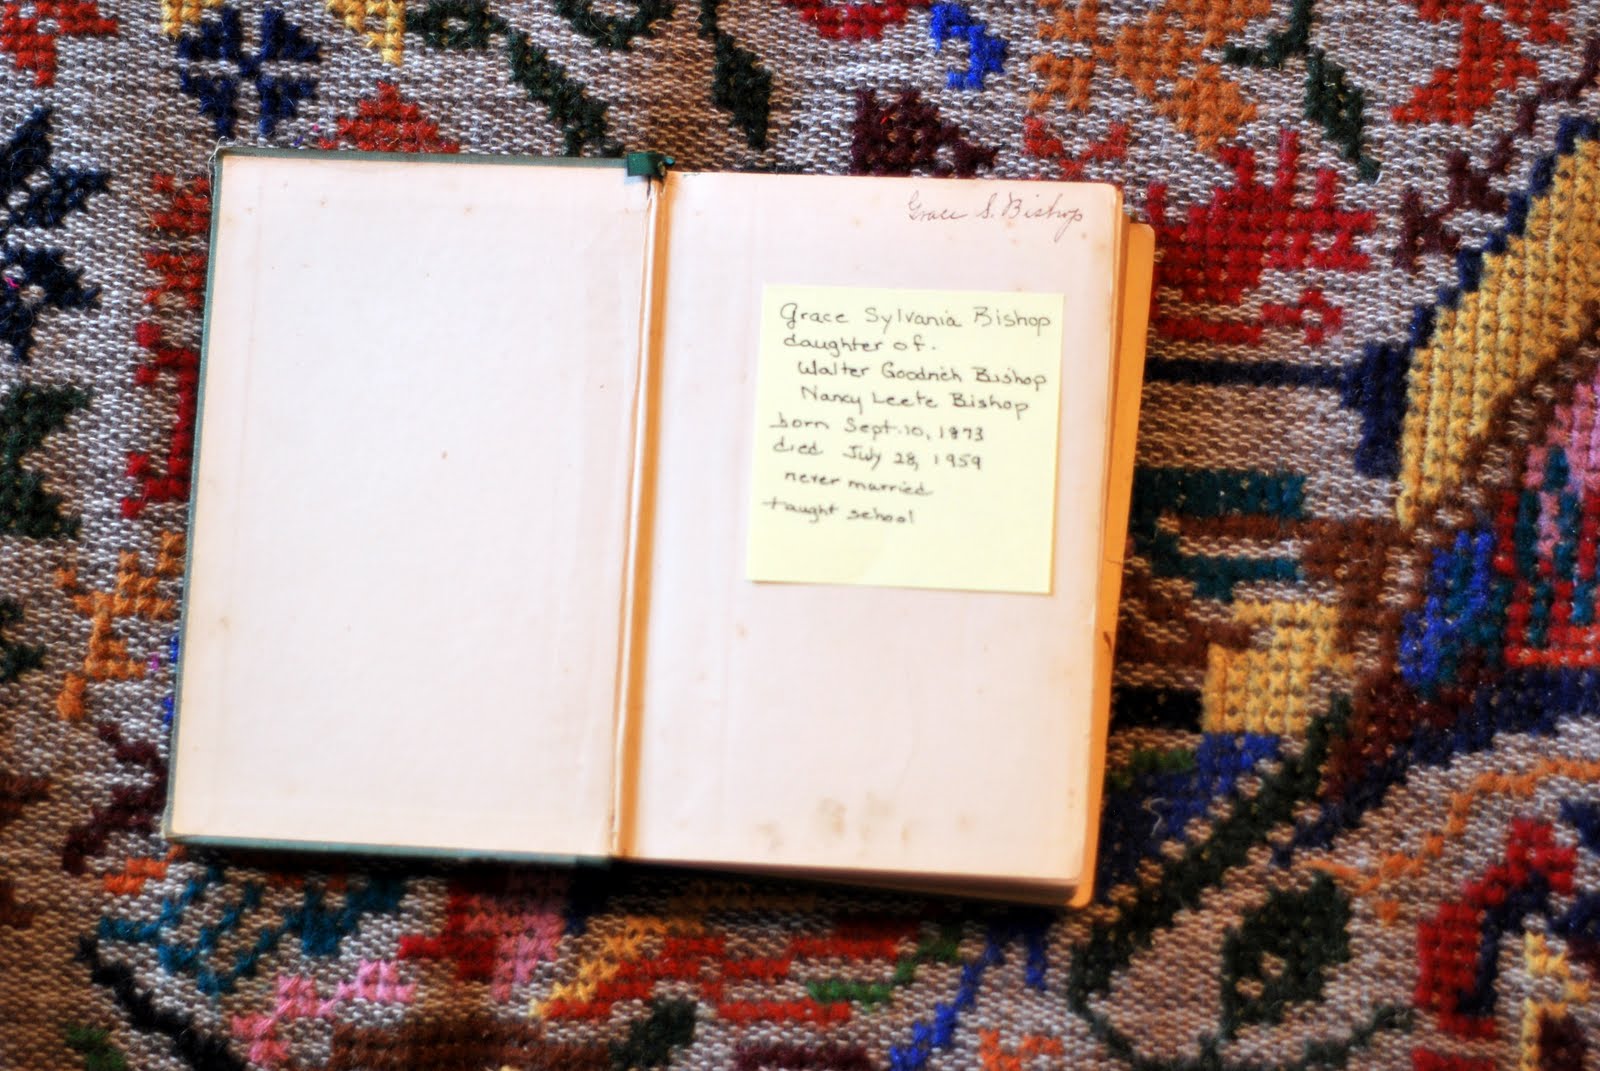 Grace S. Bishop
Grace Sylvania Bishop
daughter of.
Walter Goodrich Bishop
Nancy Leete Bishop
born Sept. 10, 1873
died July 28, 1959
never married
taught school